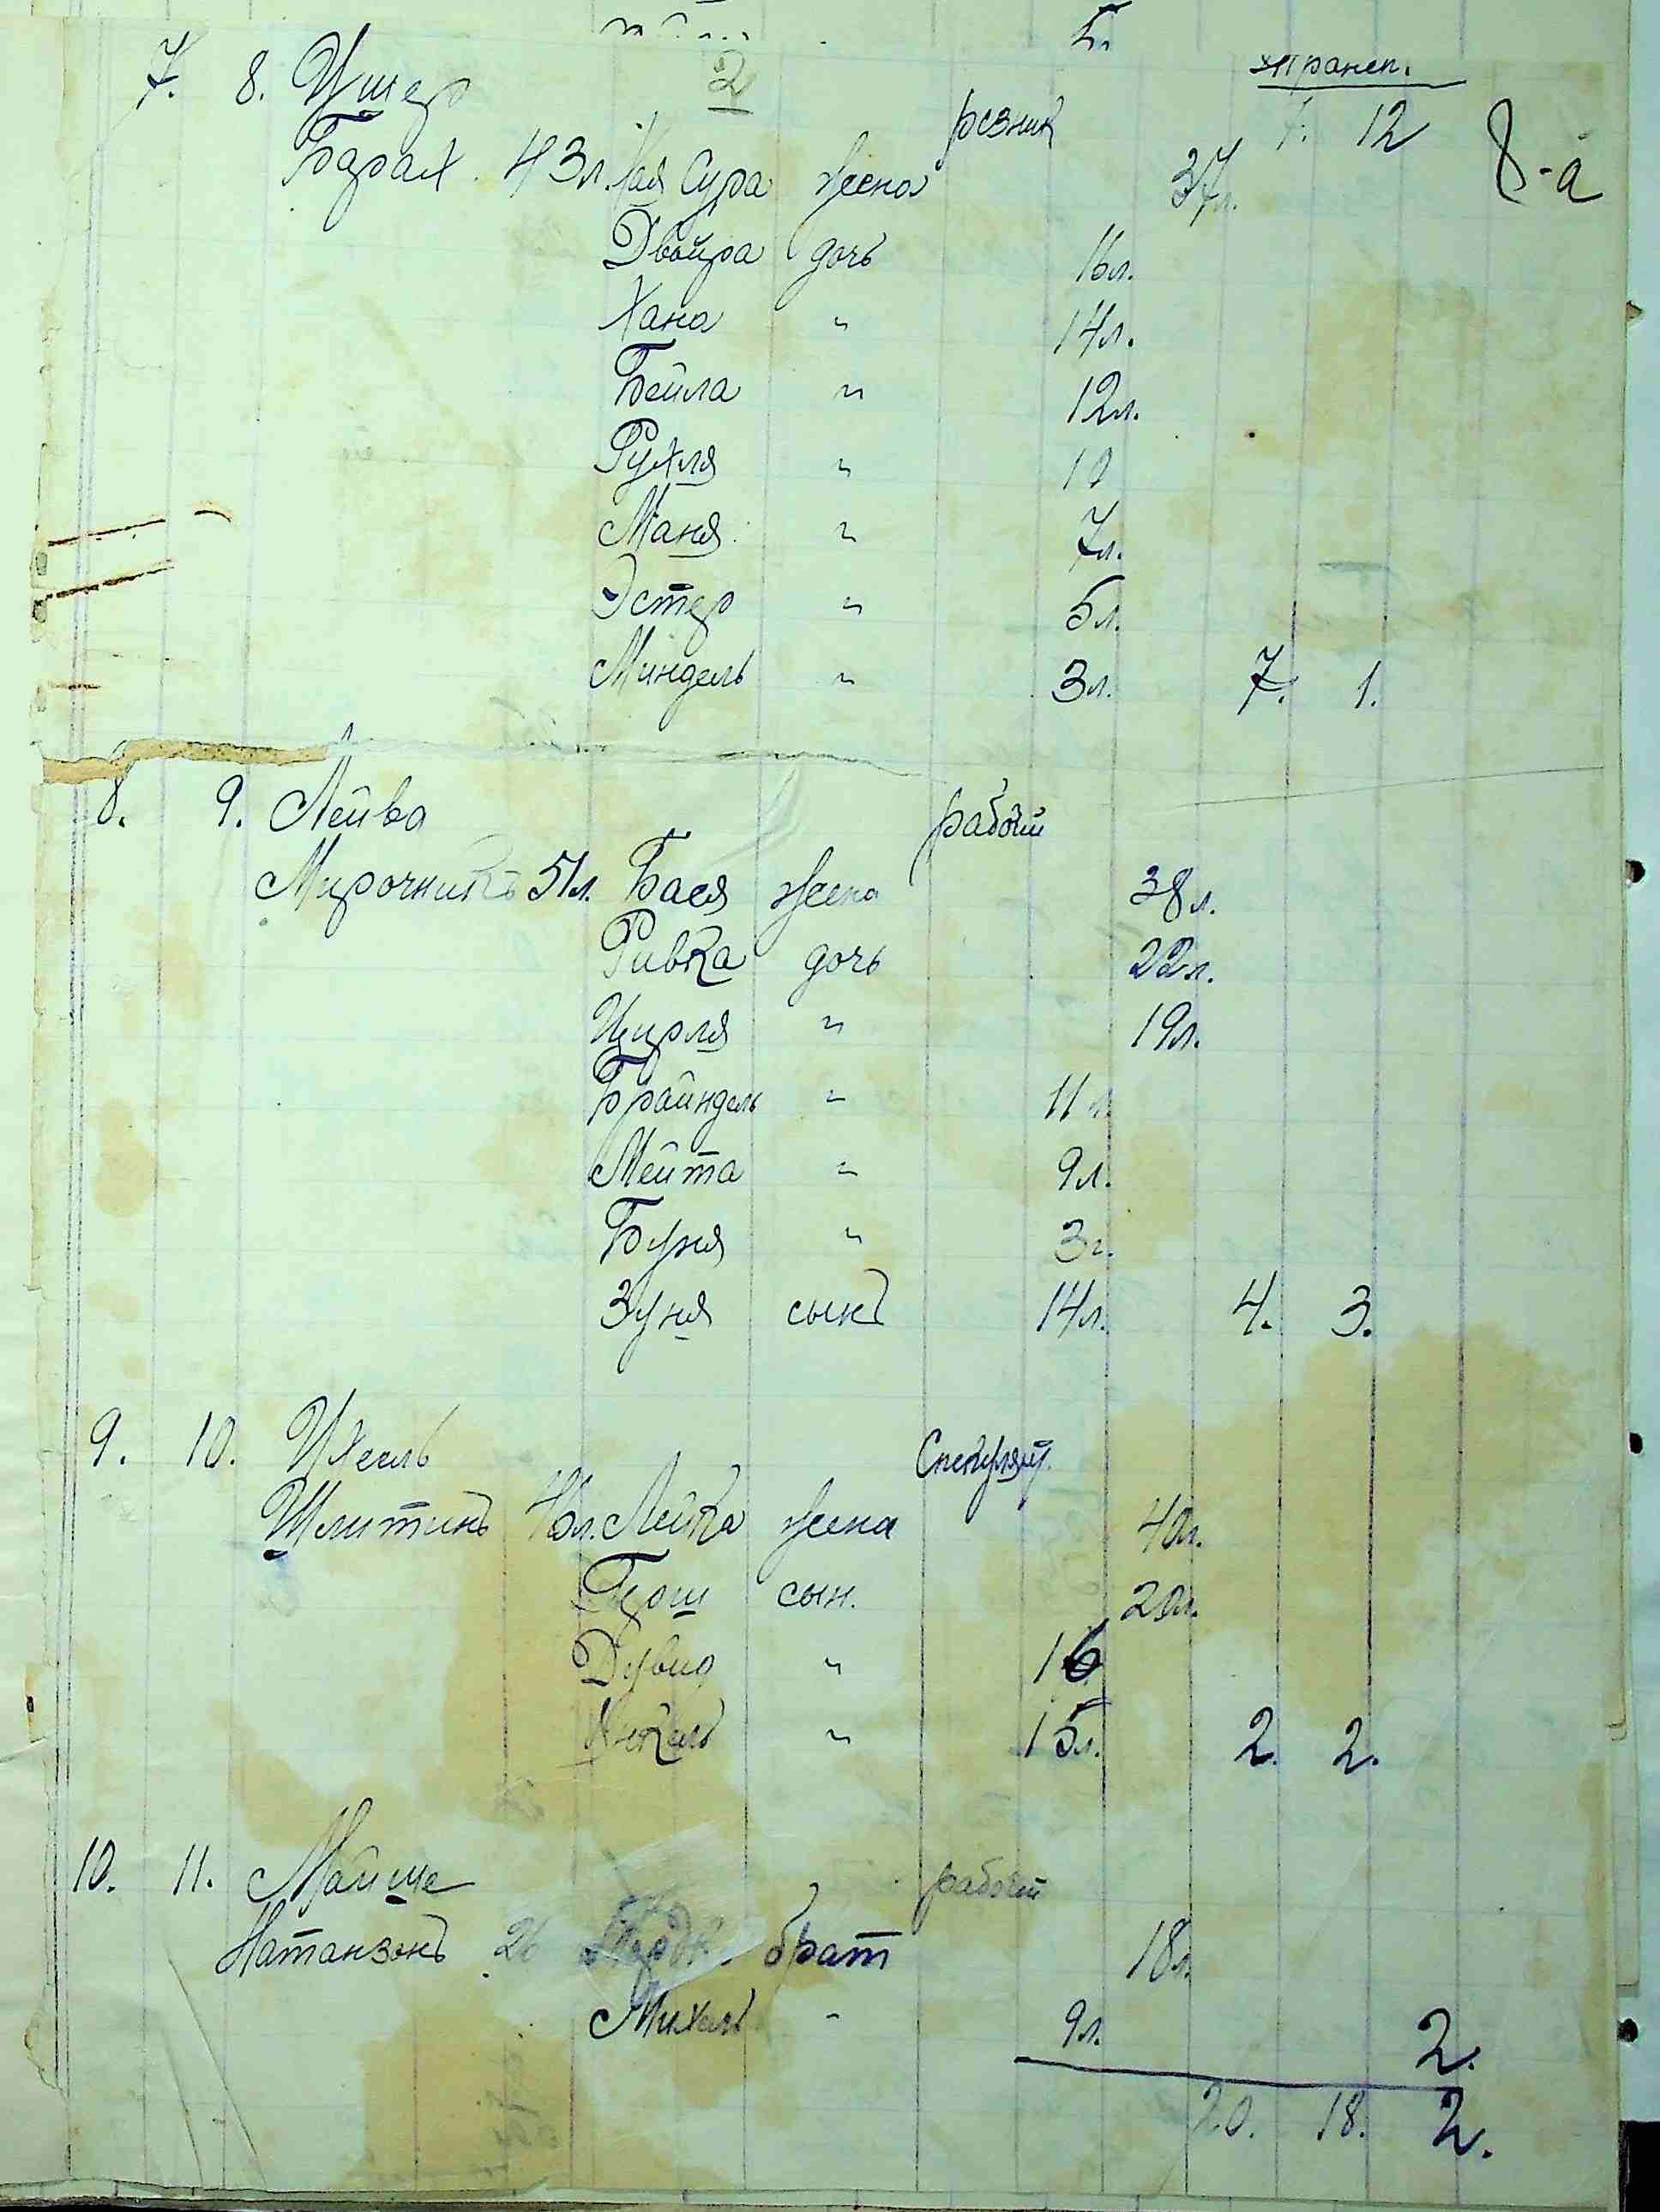 5.
2
трансп.
7. 8. Ушер резник 7. 12 8-а
Барах 43л. Хая Сура жена 37л.
Двойра дочь 16л.
Хана " 14л.
Бейла " 12л.
Рухля " 10
Маня " 7л.
Эстер " 5л.
Миндель " 3л. 7. 1.
8. 9. Лейва рабочий
Мирочникъ 51л. Бася жена 38л.
Ривка дочь 22л.
Цирля " 19л.
Брайндель " 11л.
Мейта " 9л.
Буня " 3г.
Зуня сынъ 14л. 4. 3.
9. 10. Ихель Спекулянт.
Шлитинъ Лейка жена 40л.
Герш сын. 20л.
Дувид " 16
" 15л. 2. 2.
10. 11. Мойше рабочий
Натанзонъ 26 брат 18л.
Михель " 9л. 2.
20. 18. 2.